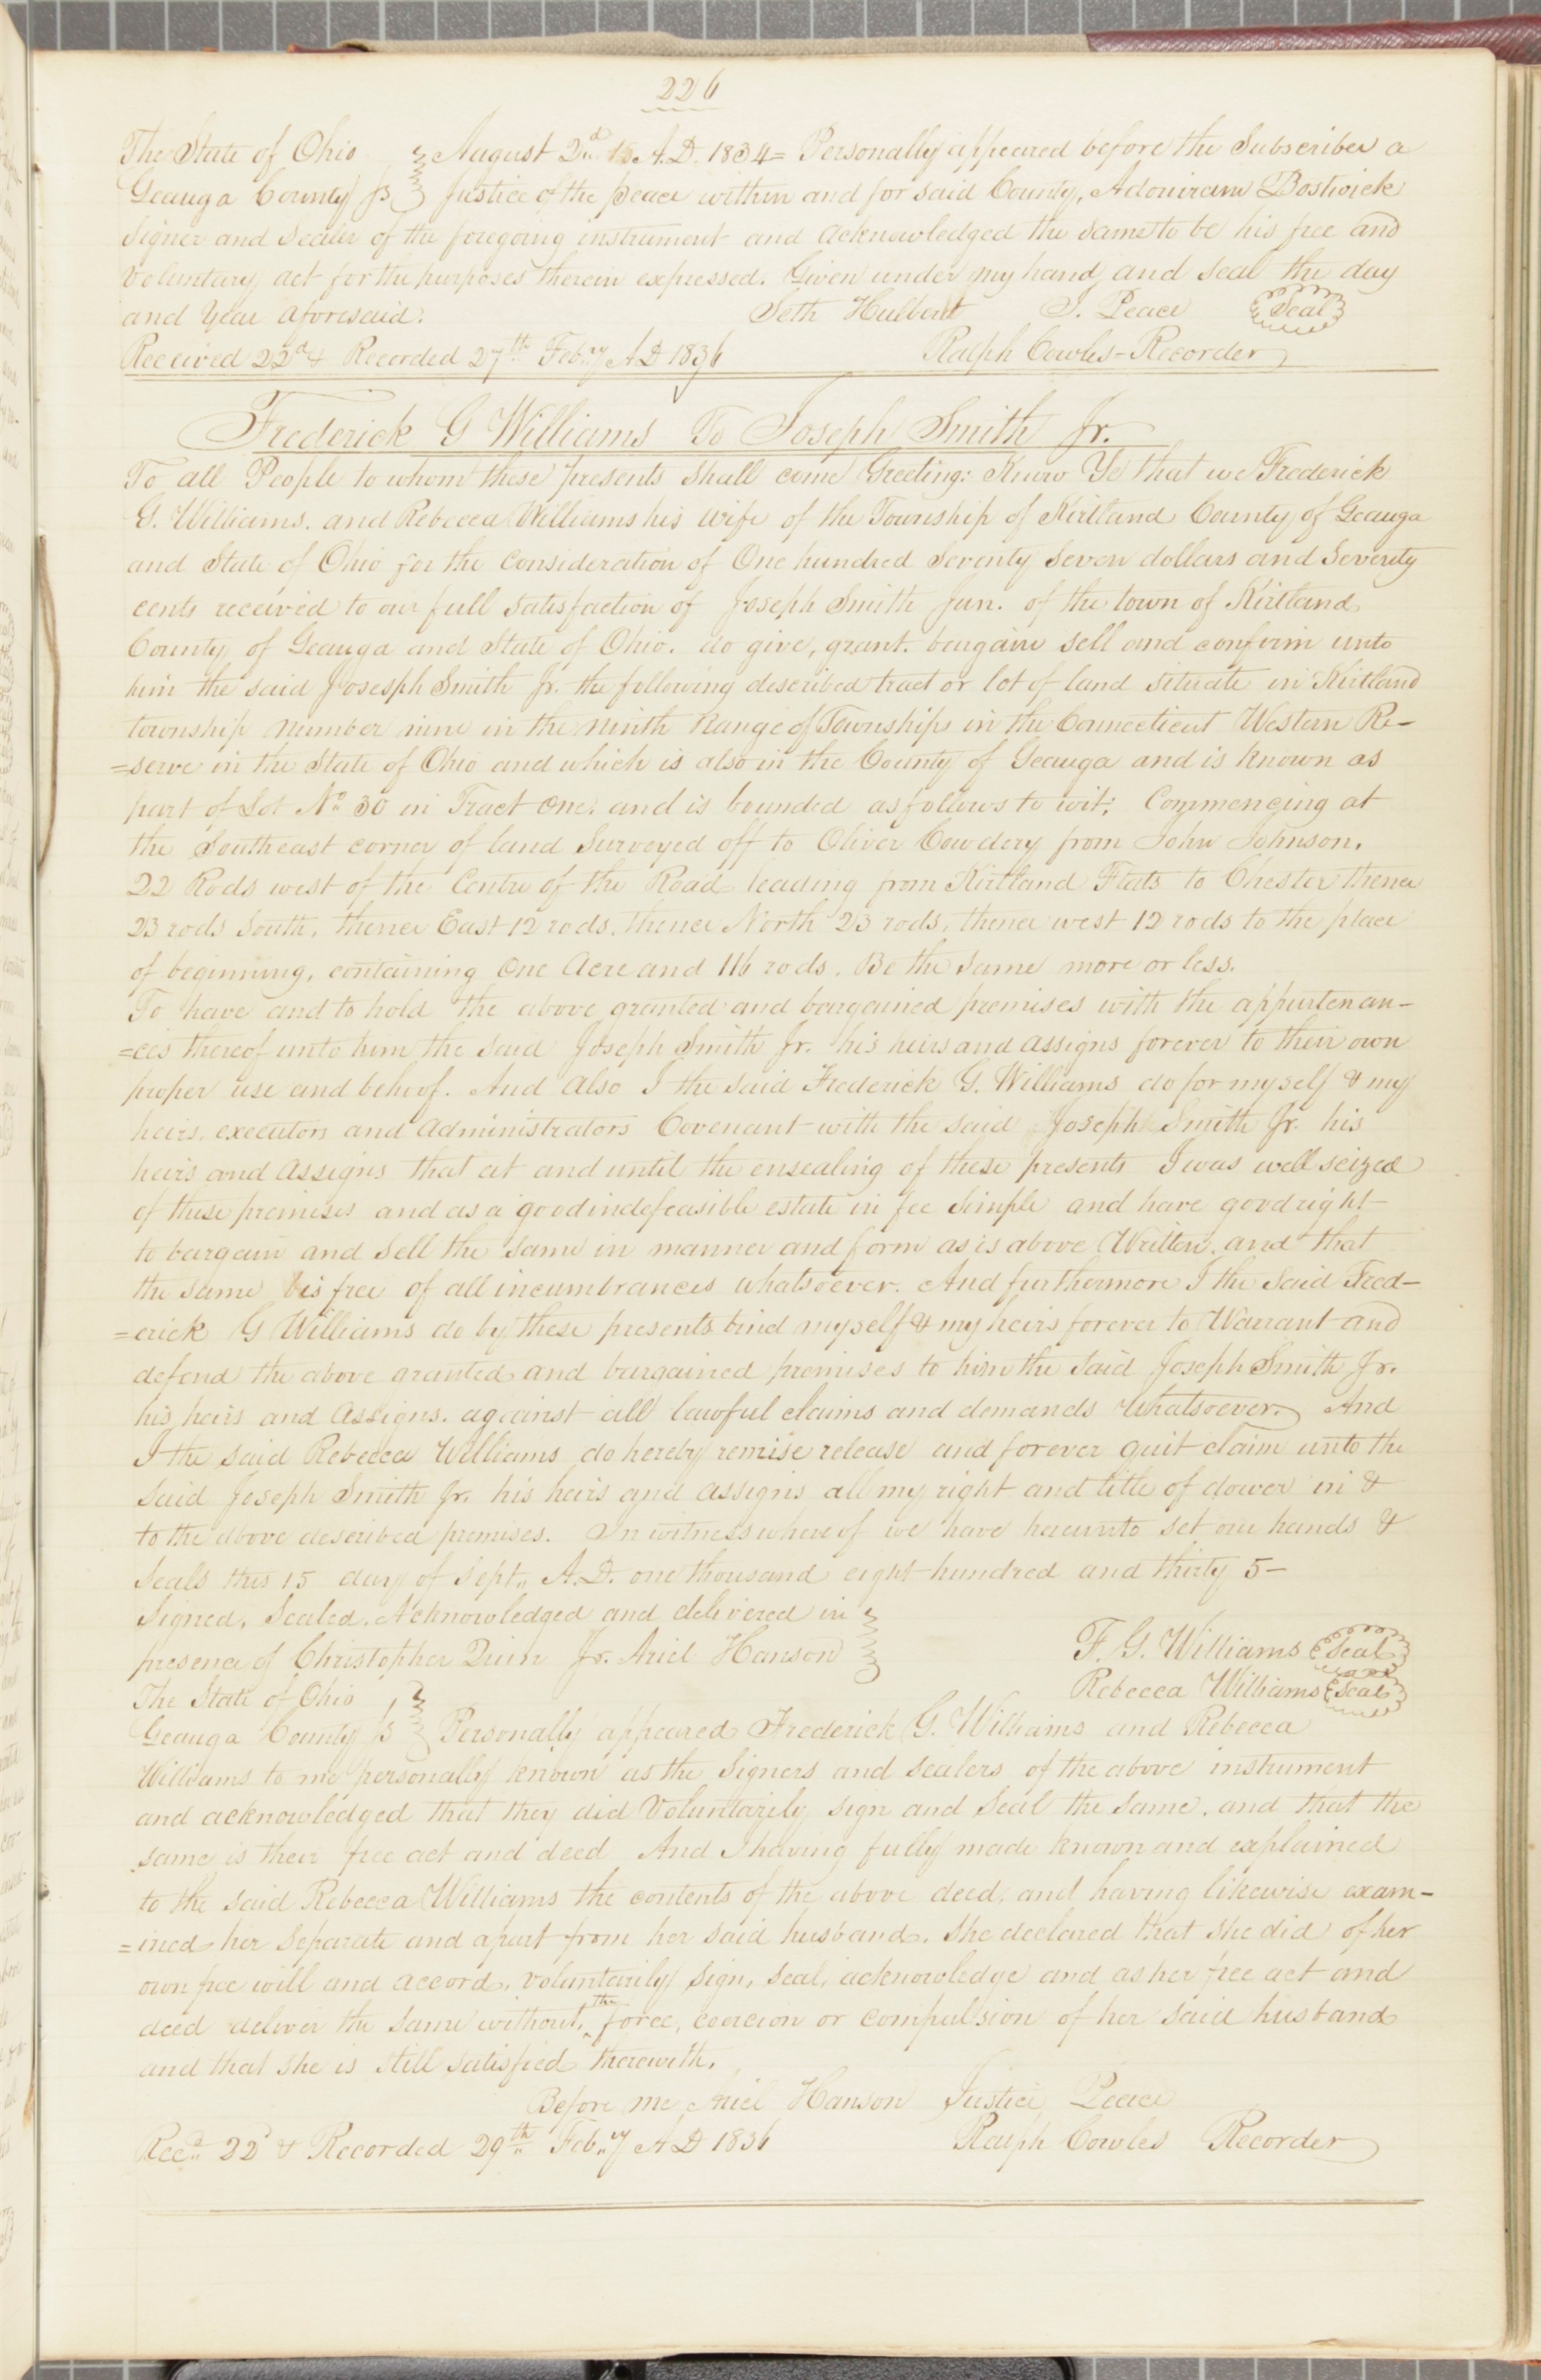 226
The State of Ohio } August 2d A.D. 1834= Personally appeared before the Subscriber a
Geauga County ss } Justice of the peace within and for said County, Adoniram Bostwick
Signer and Sealer of the foregoing instrument and acknowledged the same to be his free and
Voluntary act for the purposes therein expressed. Given under my hand and seal the day
and Year aforesaid. Seth Hulbert J. Peace Seal
Received 22d & Recorded 27th Feb.ry A D 1836 Ralph Cowles-Recorder
Frederick G Williams To Joseph Smith Jr.
To all People to whom these presents shall come Greeting: Know Ye that we Frederick
G. Williams. and Rebecca Williams his wife of the Township of Kirtland County of Geauga
and State of Ohio for the consideration of One hundred Seventy Seven dollars and Seventy
cents received to our full satisfaction of Joseph Smith Jun. of the town of Kirtland
County of Geauga and State of Ohio. do give, grant. bargain sell and confirm unto
him the said Josesph Smith Jr. the following described tract or lot of land situate in Kirtland
township number nine in the ninth Range of Townships in the Connecticut Western Re-
=serve in the State of Ohio and which is also in the County of Geauga and is known as
part of Lot No 30 in Tract One. and is bounded as follows to wit; Commencing at
the Southeast corner of land Surveyed off to Oliver Cowdery from John Johnson.
22 Rods west of the Centre of the Road leading from Kirtland Flats to Chester thence
23 rods South, thence East 12 rods. thence North 23 rods, thence west 12 rods to the place
of beginning, containing One Acre and 116 rods. Be the same more or less.
To have and to hold the above granted and bargained premises with the appurtenan-
=ces thereof unto him the said Joseph Smith Jr. his heirs and assigns forever to their own
proper use and behoof. And also I the said Frederick G. Williams do for myself & my
heirs, executors and administrators Covenant with the said Joseph Smith Jr. his
heirs and assigns that at and until the ensealing of these presents I was well seized
of these premises and as a good indefeasible estate in fee simple and have good right
to bargain and sell the same in manner and form as is above Written. and that
the same is free of all incumbrances whatsoever. And furthermore I the said Fred-
=erick G Williams do by these presents bind myself & my heirs forever to Warrant and
defend the above granted and bargained premises to him the said Joseph Smith Jr.
his heirs and assigns. against all lawful claims and demands whatsoever. And
I the said Rebecca Williams do hereby remise release and forever quit claim unto the
said Joseph Smith Jr. his heirs and assigns all my right and title of dower in &
to the above described premises. In witness whereof we have hereunto set our hands &
Seals this 15 day of Sept,, A.D. one thousand eight hundred and thirty 5-
Signed, Sealed. Acknowledged and delivered in }
presence of Christopher Quin Jr. Ariel Hanson } F. G. Williams Seal
The State of Ohio } Rebecca Williams Seal
Geauga County ss } Personally appeared Frederick G. Williams and Rebecca
Williams to me personally known as the Signers and sealers of the above instrument
and acknowledged that they did Voluntarily sign and seal the same. and that the
same is their free act and deed And I having fully made known and explained
to the said Rebecca Williams the contents of the above deed. and having likewise exam-
=ined her separate and apart from her said husband. she declared that she did of her
own free will and accord, voluntarily sign, seal, acknowledge and as her free act and
deed deliver the same without, ^the force, coercion or compulsion of her said husband
and that she is still satisfied therewith.
Before me Ariel Hanson Justice Peace
Recd 22d & Recorded 29th Feb.ry A D 1836 Ralph Cowles Recorder